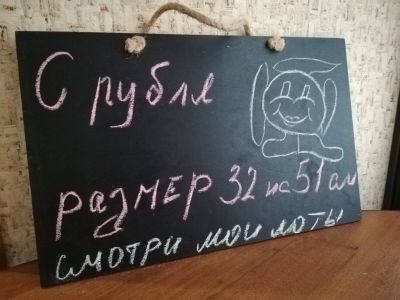 С рубля
размер 32 на 51 см
смотри мои лоты